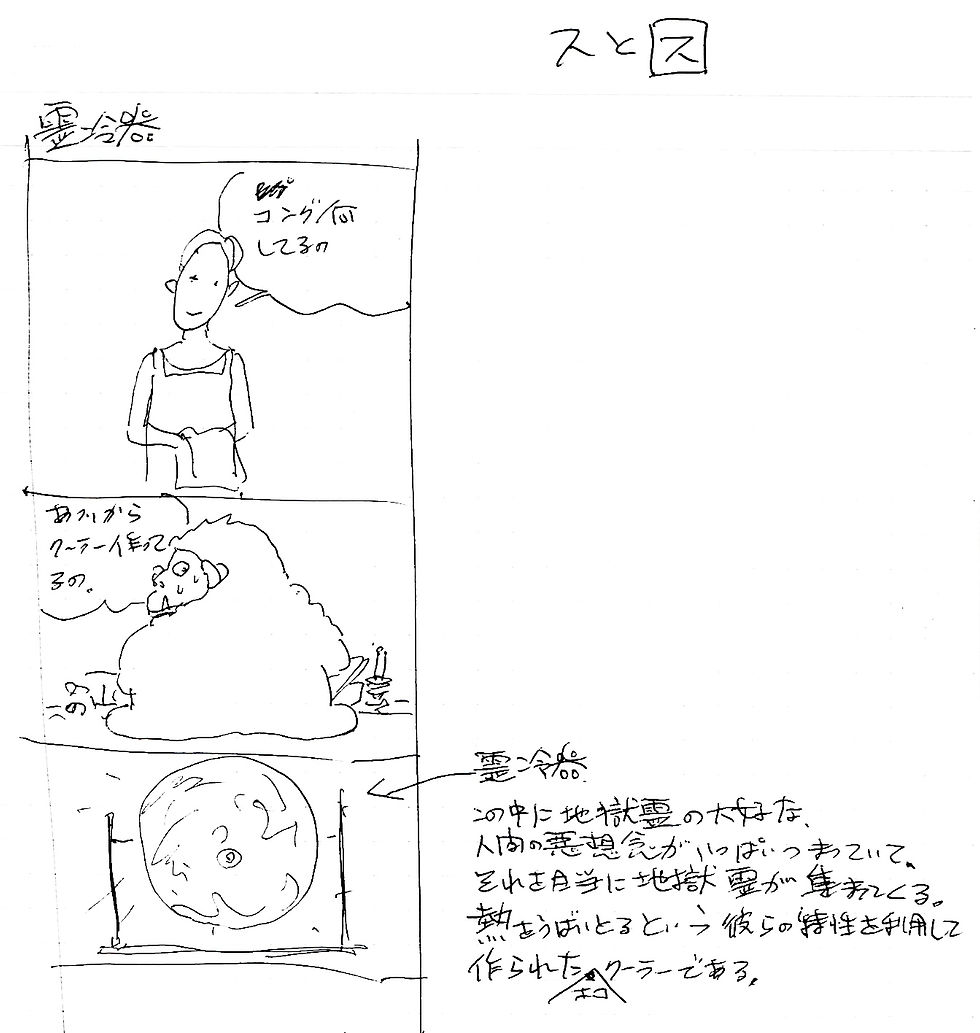 スと ス
霊冷器
コング何
してるの
あついから
クーラー作って
るの。
霊冷器
この中に地獄霊の大好な、
人間の悪想念がいっぱいつまっていて、
それを目当に地獄霊が集まってくる。
熱をうばいとるという彼らの特性を利用して
作られたクーラーである。
エコ